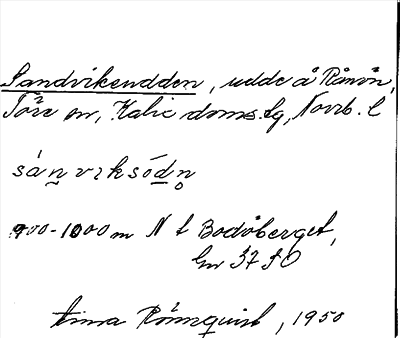 Sandvikeudden, udde å Rånön,
Töre sn, Kalix doms.lg, Norrb. l
sánvıksód̲n̥
900-1000 m N t Bodöberget,
37 I O
Rönnquist, 1950